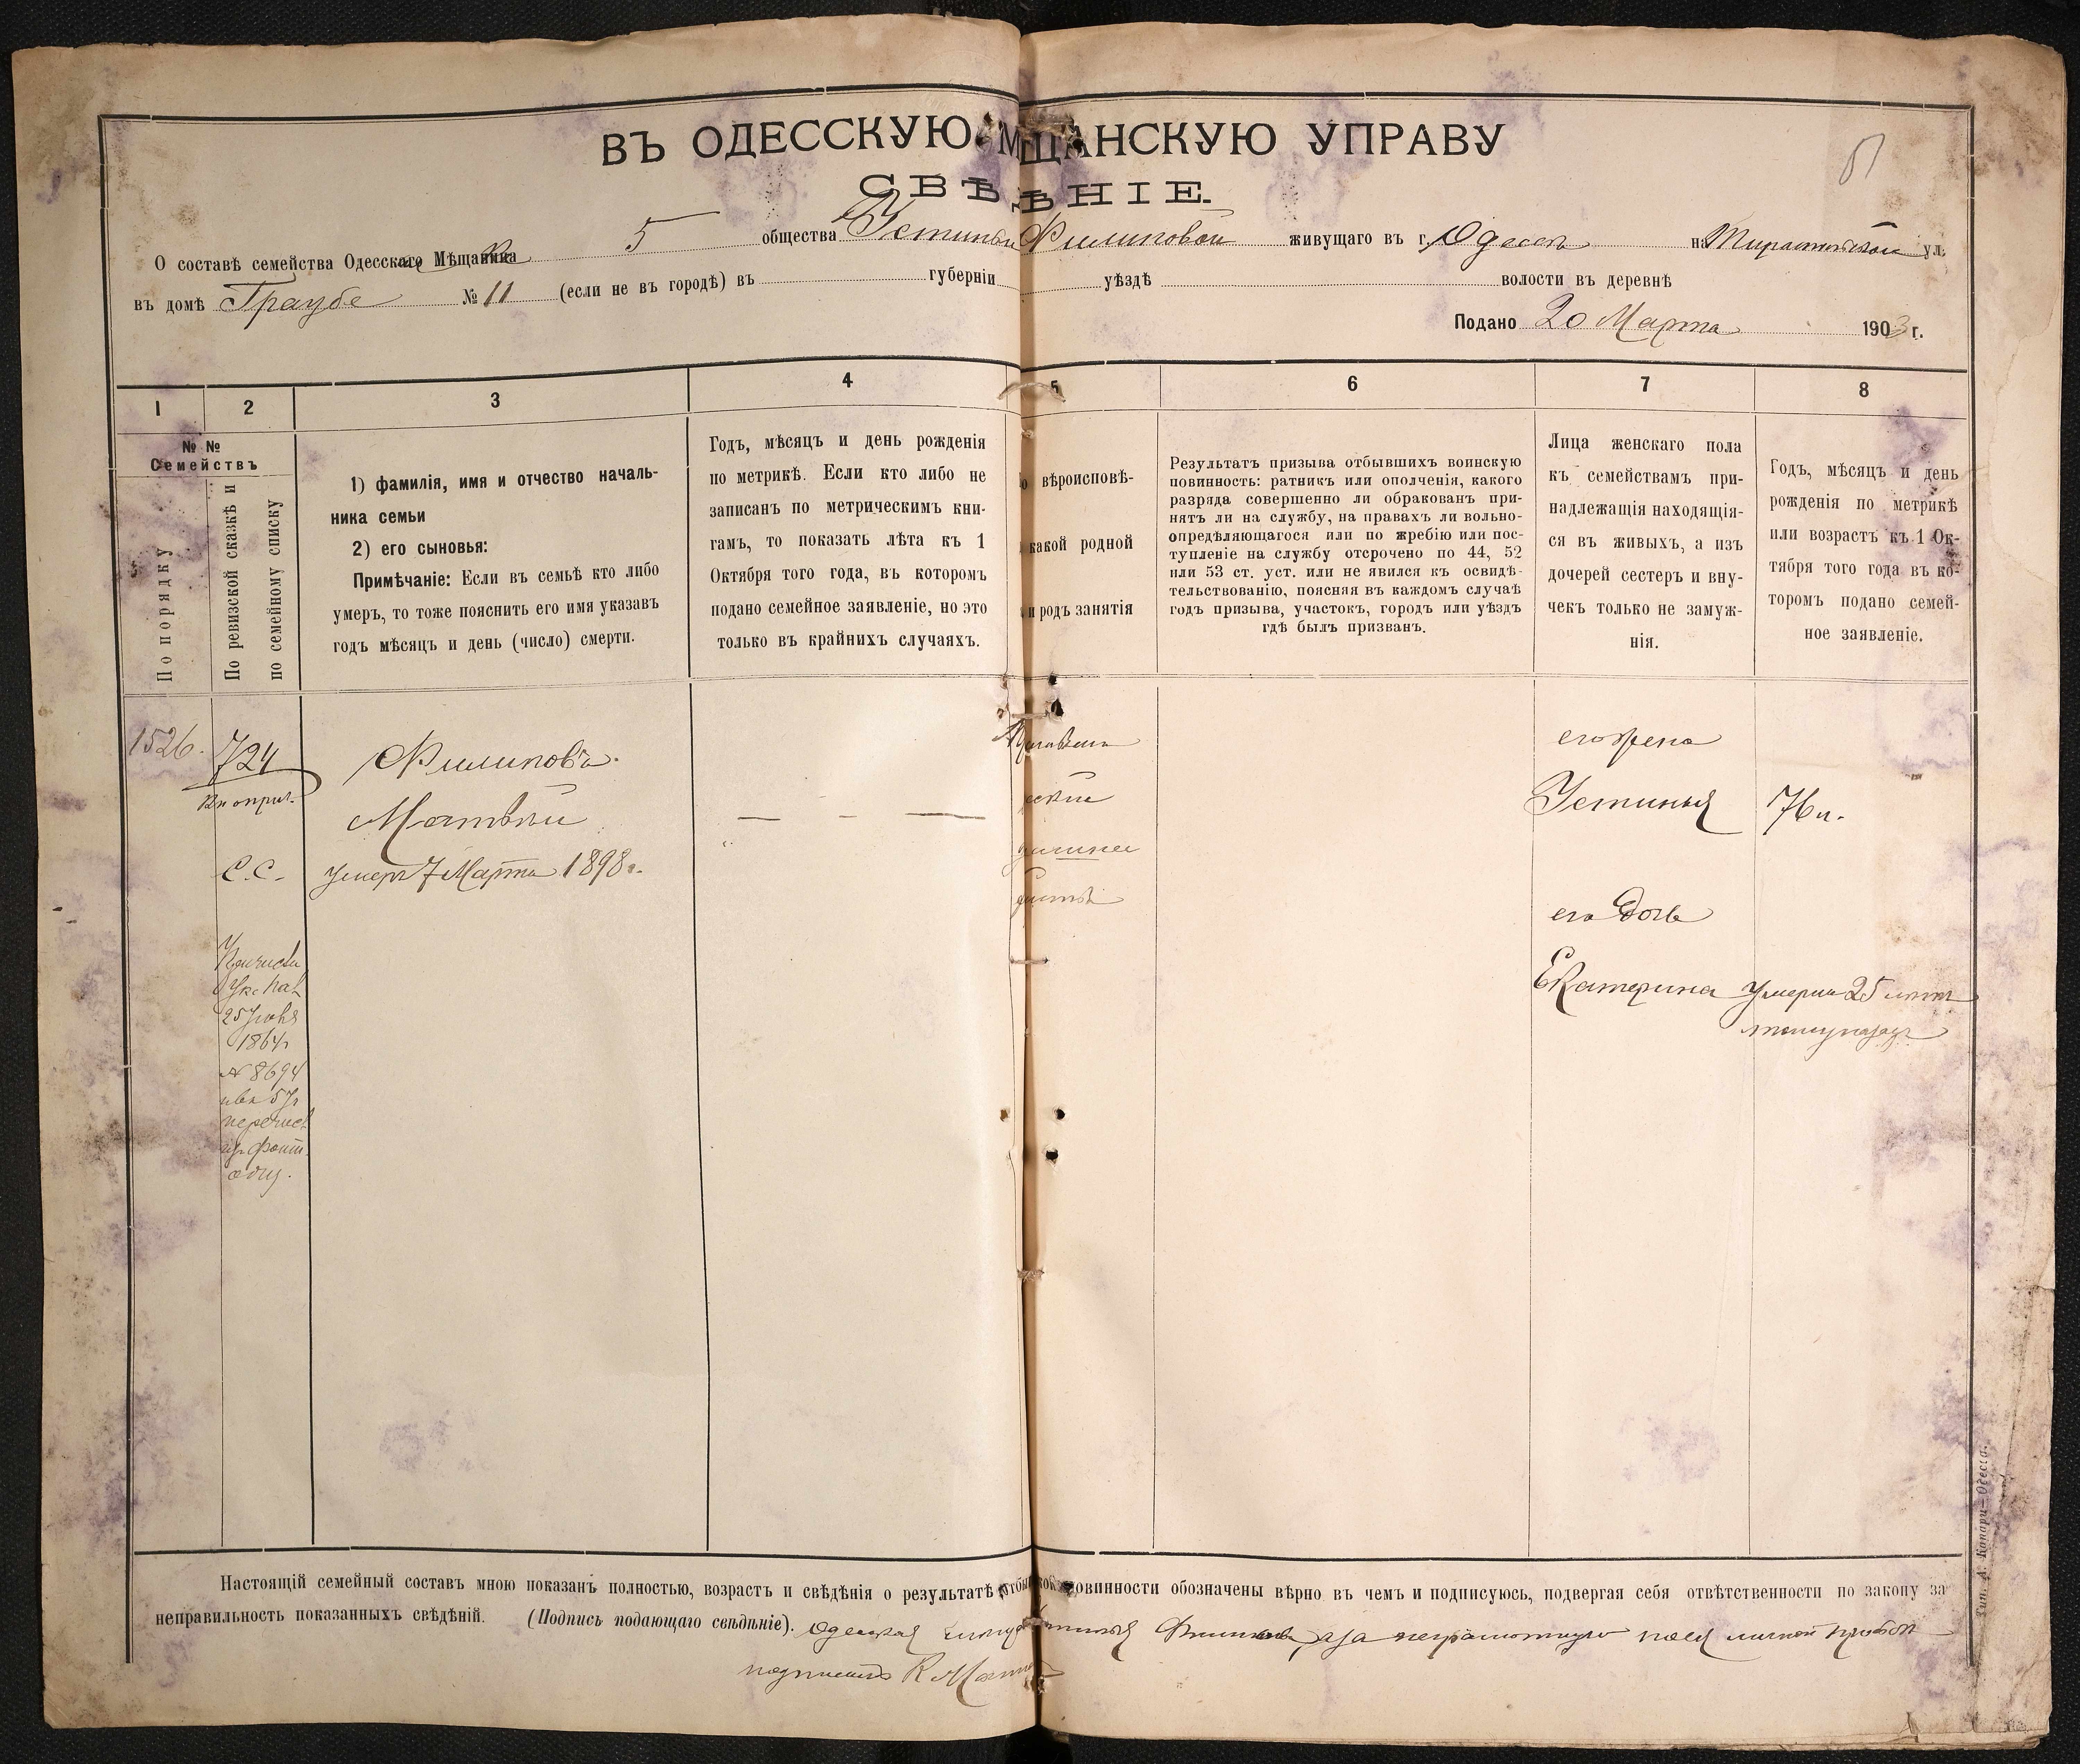 ВЪ ОДЕССКУЮ МЩАНСКУЮ УПРАВУ
СВѢѢНІЕ.
О составѣ семейства Одесскаго Мѣщанина 5 общества Устиньи Филиповой живущаго въ г. Одессѣ на ул.
въ домѣ Граубе № 11 (если не въ городѣ) въ губерніи уѣздѣ волости въ деревнѣ
Подано 20 Марта 1903 г.
1 2 3 4 5 6 7 8
№ №
Семействъ
По порядку
По ревизской сказкѣ и
по семейному списку
1) фамилія, имя и отчество началь-
ника семьи
2) его сыновья:
Примѣчаніе: Если въ семьѣ кто либо
умеръ, то тоже пояснить его имя указавъ
годъ мѣсяцъ и день (число) смерти.
Годъ, мѣсяцъ и день рожденія
по метрикѣ. Если кто либо не
записанъ по метрическимъ кни-
гамъ, то показать лѣта къ 1
Октября того года, въ которомъ
подано семейное заявленіе, но это
только въ крайнихъ случаяхъ.
вѣроисповѣ-
какой родной
и родъ занятія
Результатъ призыва отбывшихъ воинскую
повинность: ратникъ или ополченія, какого
разряда совершенно ли обракованъ при-
нятъ ли на службу, на правахъ ли вольно-
опредѣляющагося или по жребію или пос-
тупленіе на службу отсрочено по 44, 52
или 53 ст. уст. или не явился къ освидѣ-
тельствованію, поясняя въ каждомъ случаѣ
годъ призыва, участокъ, городъ или уѣздъ
гдѣ былъ призванъ.
Лица женскаго пола
къ семействамъ при-
надлежащія находящія-
ся въ живыхъ, а изъ
дочерей сестеръ и вну-
чекъ только не замуж-
нія.
Годъ, мѣсяцъ и день
рожденія по метрикѣ
или возрастъ къ 1 Ок-
тября того года въ ко-
торомъ подано семей-
ное заявленіе.
1526.
724
С.С.
25 Іюня
1864г
№ 8694
Филиповъ
Матвѣй
умеръ 7 Марта 1898г.
его жена
Устинья 76 л.
его дочь
Екатерина умерла 25 лѣтъ
тому назадъ
Настоящій семейный составъ мною показанъ полностью, возрастъ и свѣдѣнія о результатѣ повинности обозначены вѣрно въ чемъ и подписуюсь, подвергая себя отвѣтственности по закону за
неправильность показанныхъ свѣдѣній. (Подпись подающаго свѣдѣніе). Одесская Филипова, а за неграмотную по ея личной прозьбѣ
подписалъ К
Тип. А. Капари—Одесса.